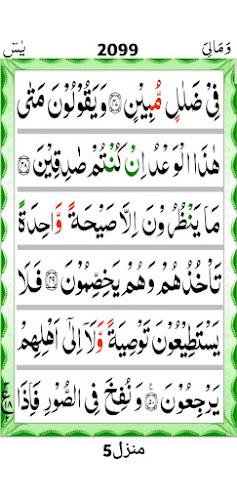 وَمَالِیَ 2099 یٰسٓ
فِیْ ضَلٰلٍ مُّبِیْنٍ ﴿۴۷﴾ وَیَقُوْلُوْنَ مَتٰی
هٰذَا الْوَعْدُ اِنْ كُنْتُمْ صٰدِقِیْنَ ﴿۴۸﴾
مَا یَنْظُرُوْنَ اِلَّا صَیْحَةً وَّاحِدَةً
تَاْخُذُهُمْ وَهُمْ یَخِصِّمُوْنَ ﴿۴۹﴾ فَلَا
یَسْتَطِیْعُوْنَ تَوْصِیَةً وَّلَاۤ اِلٰۤی اَهْلِهِمْ
یَرْجِعُوْنَ ﴿۵۰﴾ وَنُفِخَ فِی الصُّوْرِ فَاِذَا
منزل5